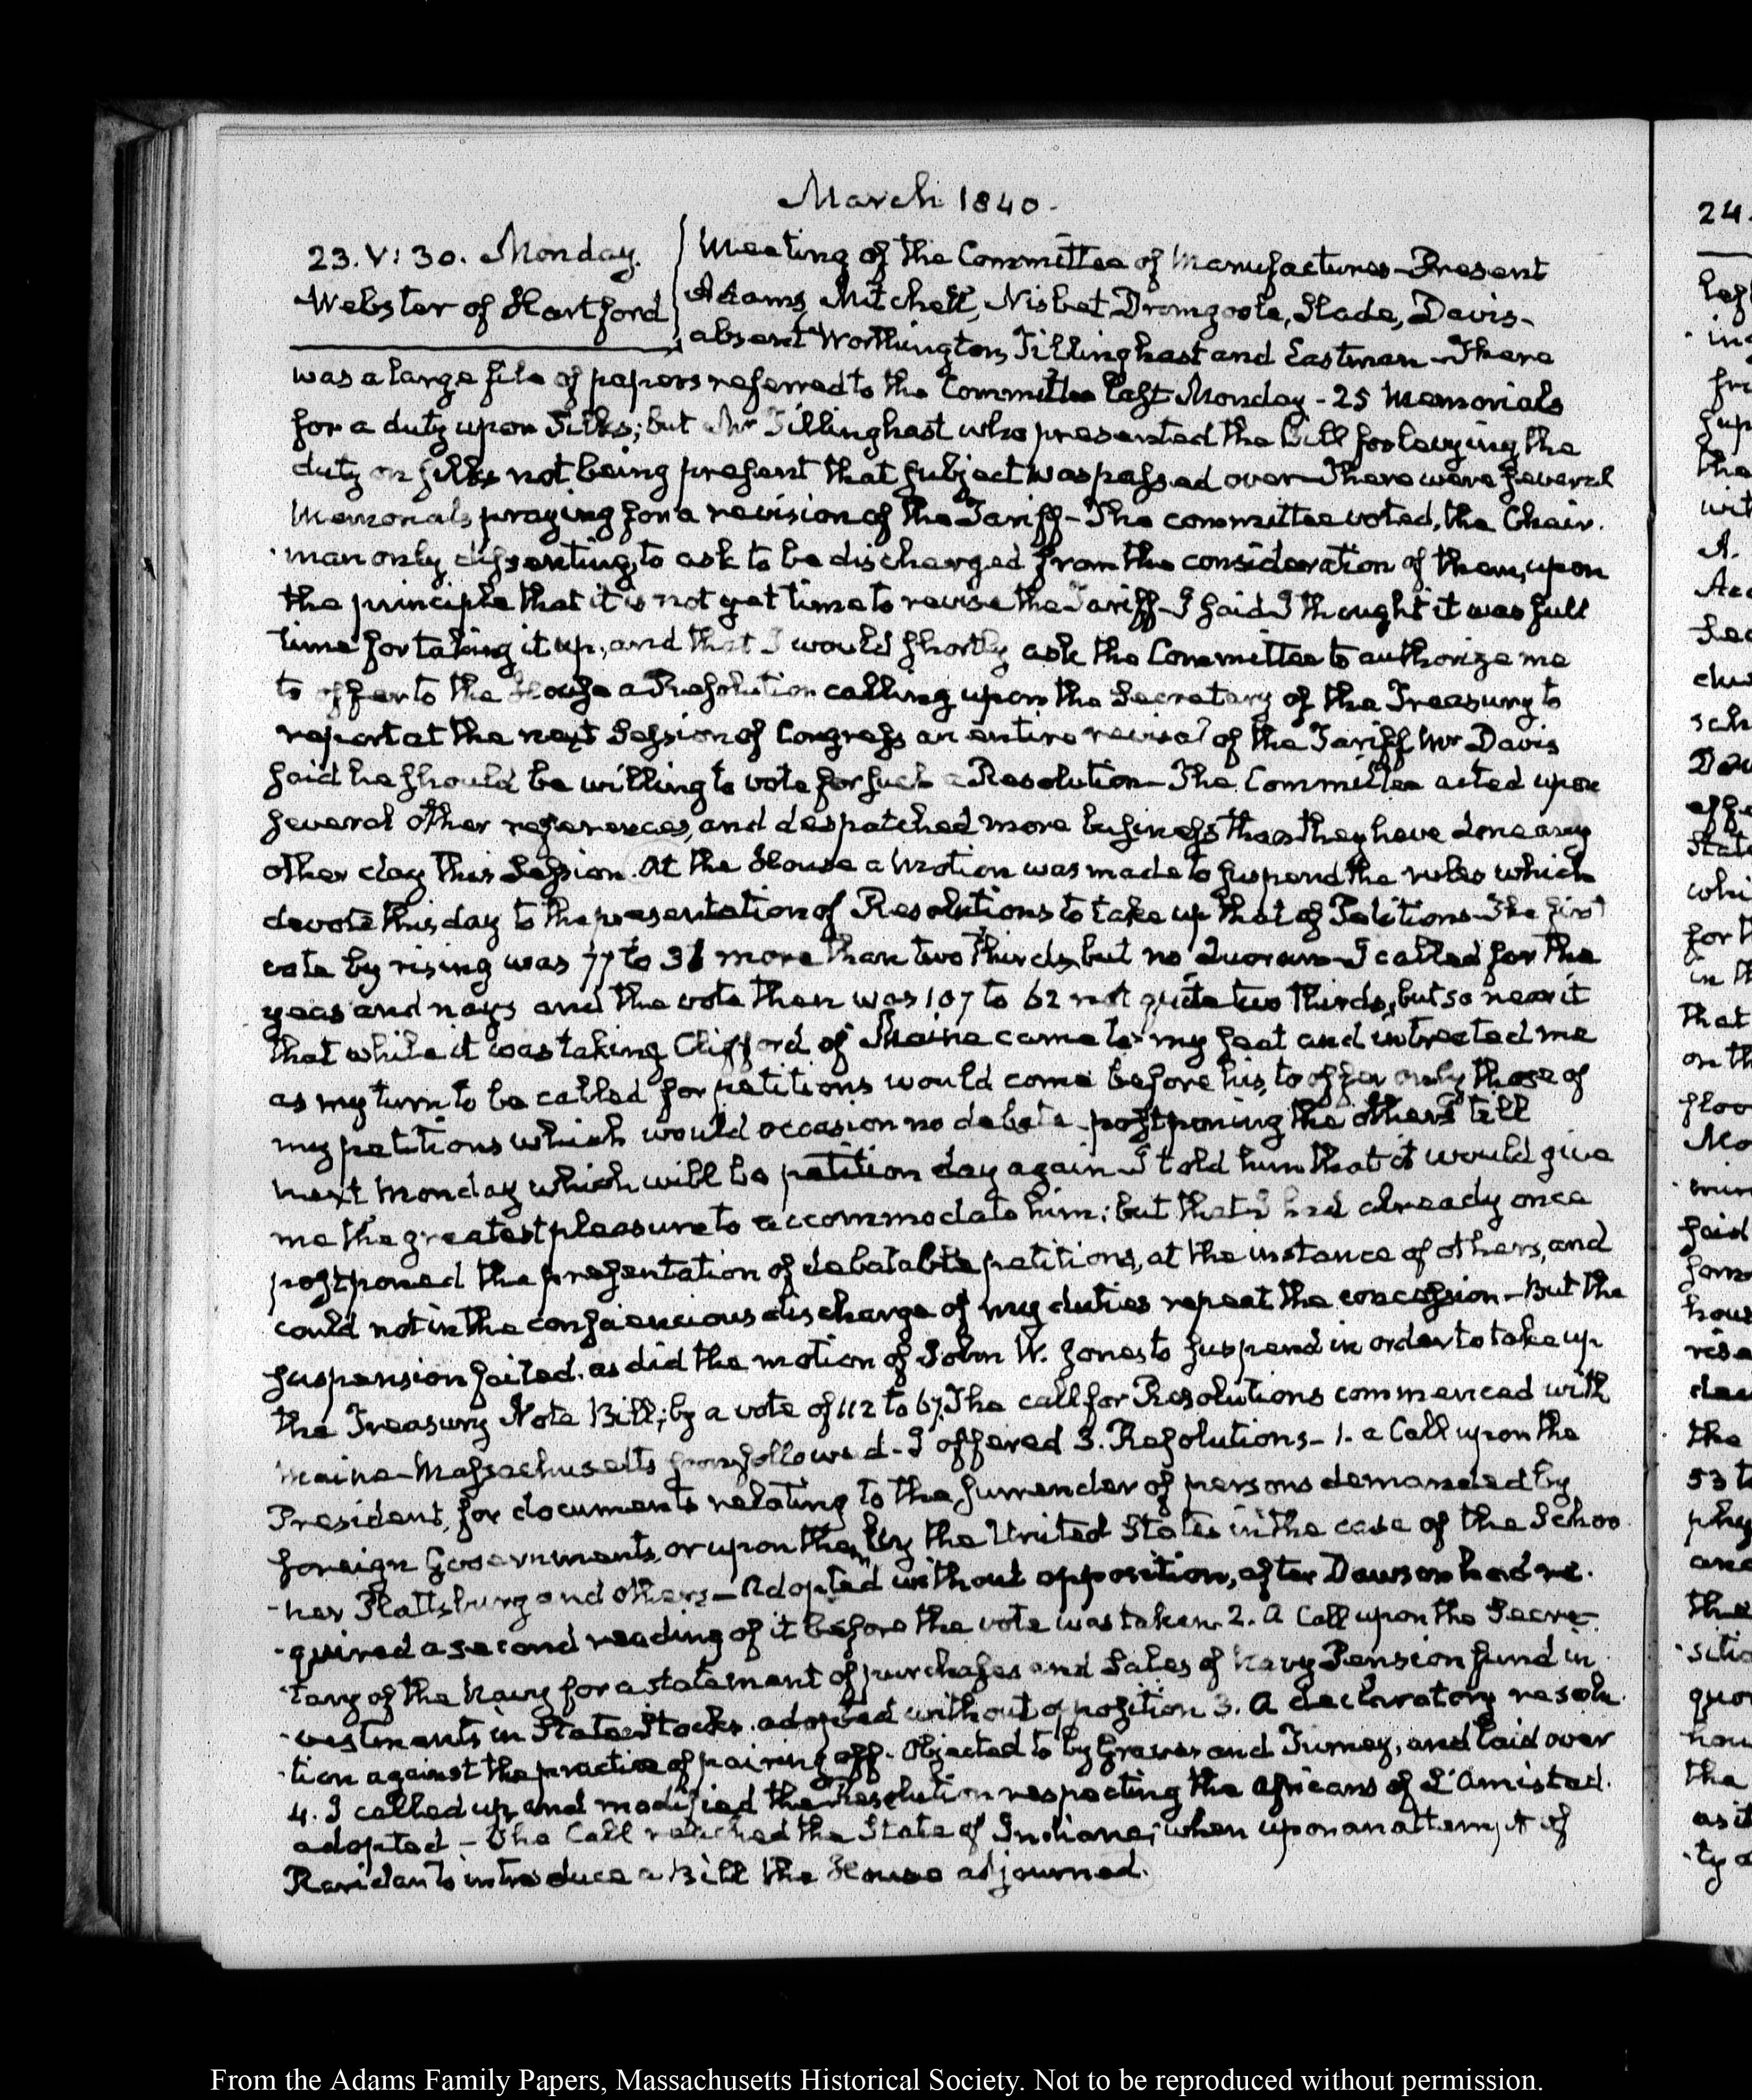 March 1840.
23. V: 30. Monday.
Webster of Hartford
Meeting of the Committee of Manufactures – Present
Adams, Mitchell, Nisbet, Dromgoole, Slade, Davis –
absent Worthington, Tillinghast and Eastman – There
was a large file of papers referred to the Committee last Monday – 25 Memorials
for a duty upon Silks; but Mr Tillinghast who presented the Bill for levying the
duty on silks not being present that subject was passed over – There were several
Memorials praying for a revision of the Tariff – The committee voted, the Chair-
man only dissenting, to ask to be discharged from the consideration of them, upon
the principle that it is not yet time to revise the Tariff – I said I thought it was full
time for taking it up, and that I would shortly ask the Committee to authorize me
to offer to the House a Resolution calling upon the Secretary of the Treasury to
report at the next Session of Congress an entire revisal of the Tariff Mr Davis
said he should be willing to vote for such a Resolution – The Committee acted upon
several other references, and despatched more business than they have done any
other day this Session. At the House a Motion was made to suspend the rules which
devote this day to the presentation of Resolutions to take up that of Petitions – The first
vote by rising was 77 to 31 more than two thirds, but no Quorum – I called for the
yeas and nays and the vote then was 107 to 62 not quite two thirds, but so near it
that while it was taking Clifford of Maine came to my seat and intreated me
as my turn to be called for petitions would come before his, to offer only those of
my petitions which would occasion no debate – postponing the others till
next Monday which will be petition day again – I told him that it would give
me the greatest pleasure to accommodate him; but that I had already once
postponed the presentation of debatable petitions, at the instance of others, and
could not in the consciencious discharge of my duties repeat the concession – But the
suspension failed. as did the motion of John W. Jones to suspend in order to take up
the Treasury Note Bill; by a vote of 112 to 67. The call for Resolutions commenced with
Maine – Massachusetts soon followed – I offered 3. Resolutions – 1. a Call upon the
President, for documents relating to the surrender of persons demanded by
foreign Governments, or upon them by the United States in the case of the Schoo
-ner Plattsburg and others – Adopted without opposition, after Dawson had re-
-quired a second reading of it before the vote was taken. 2. A Call upon the Secre-
-tary of the Navy for a statement of purchases and Sales of Navy Pension fund in
-vestments in State Stocks. adopted without opposition 3. A declaratory resolu-
-tion against the practice of pairing off. Objected to by Graves and Turney, and laid over
4. I called up, and modified the Resolution respecting the Africans of L'Amistad.
adopted – The Call reached the State of Indiana; when upon an attempt of
Rariden to introduce a Bill the House adjourned.
24.
From the Adams Family Papers, Massachusetts Historical Society. Not to be reproduced without permission.